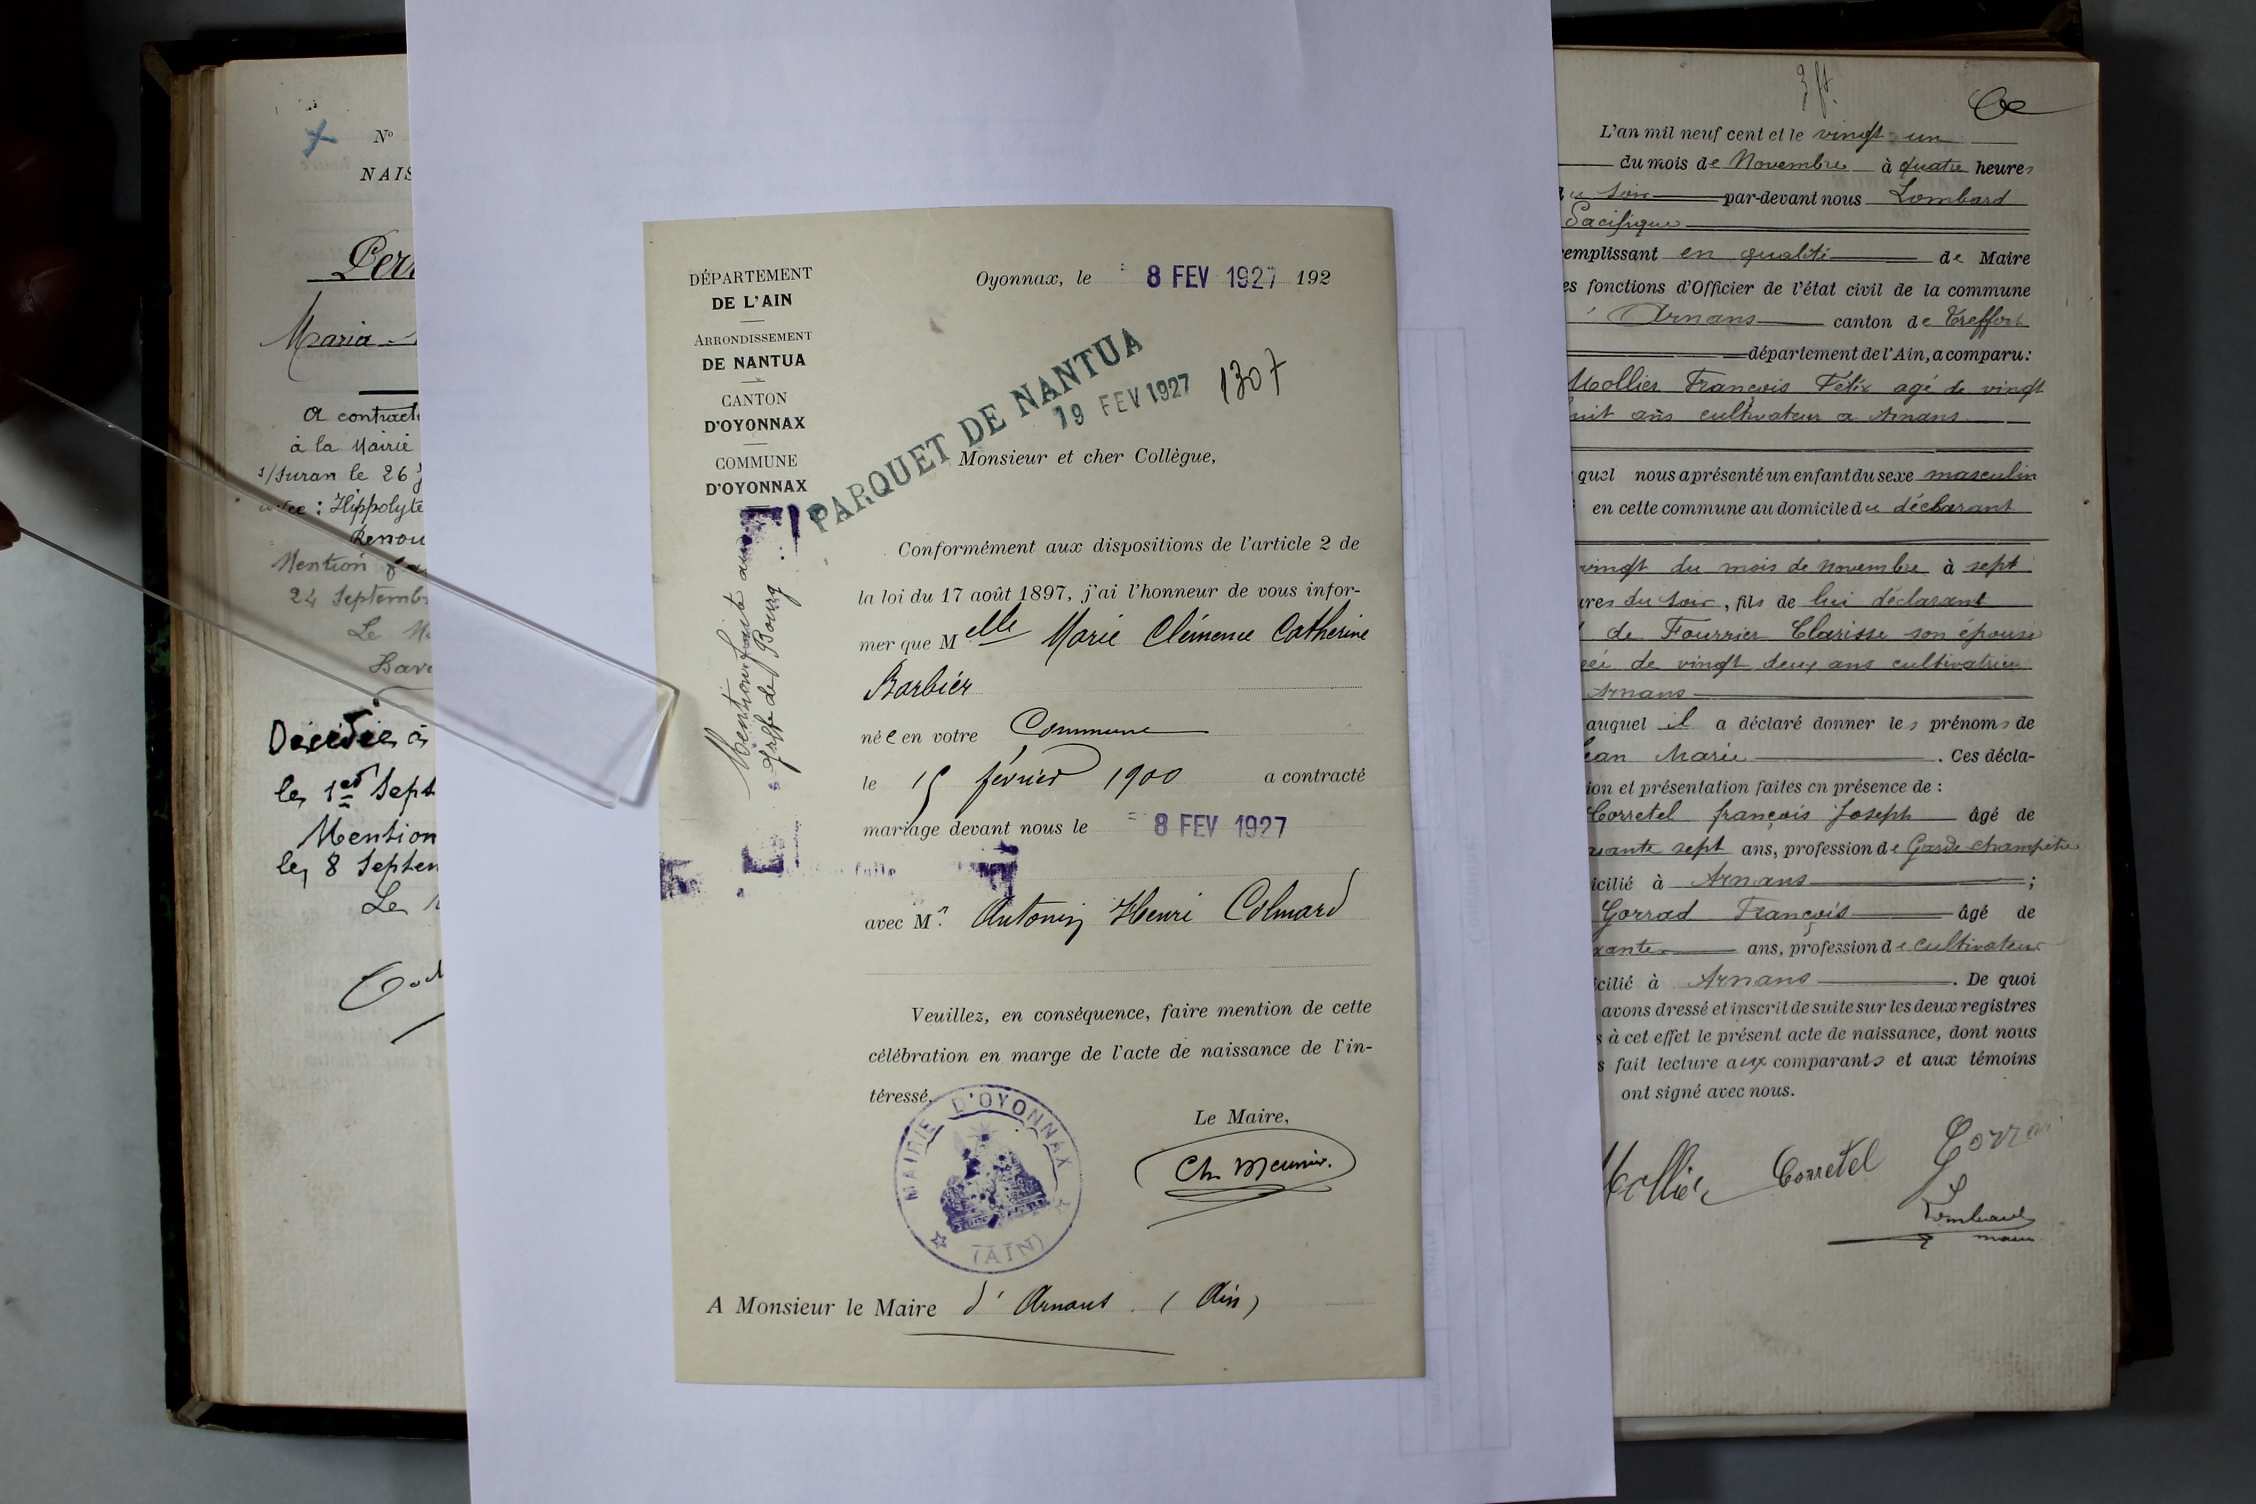 N°
NAIS
Maria
a contract
à la Mairie
s/Suran le 26
: Hippolyte
Renou
Mention
24 Septemb
Le M
Décédée à
le 1er Sept
Mention
le 8 Septem
Le
DÉPARTEMENT
DE L'AIN
ARRONDISSEMENT
DE NANTUA
CANTON
D'OYONNAX
COMMUNE
D'OYONNAX
Mention faite au
Greffe de Bourg
Oyonnax, le 8 FEV 1927 192
PARQUET DE NANTUA
19 FEV 1927
1307
Monsieur et cher Collègue,
Conformément aux dispositions de l'article 2 de
la loi du 17 août 1897, j'ai l'honneur de vous infor-
mer que Melle Marie Clémence Catherine
Barbier
née en votre Commune
le 15 février 1900 a contracté
mariage devant nous le 8 FEV 1927
faite
avec Mr. Antonin Henri Colmard
Veuillez, en conséquence, faire mention de cette
célébration en marge de l'acte de naissance de l'in-
téressé.
Le Maire,
Ch. Meunier.
MAIRIE D'OYONNAX
(AIN)
A Monsieur le Maire d'Arnans (Ain)
L'an mil neuf cent et le vingt un
du mois de Novembre à quatre heures
soir par-devant nous Lombard
Pacifique
remplissant en qualité de Maire
es fonctions d'Officier de l'état civil de la commune
Arnans canton de Treffort
département de l'Ain, a comparu:
Mollier François Félix agé de vingt
huit ans cultivateur a Arnans
quel nous a présenté un enfant du sexe masculin
en cette commune au domicile du déclarant
vingt du mois de Novembre à sept
ures du soir, fils de lui déclarant
de Fourrier Clarisse son épouse
gée de vingt deux ans cultivatrice
Arnans
auquel il a déclaré donner les prénoms de
Jean Marie. Ces décla-
ion et présentation faites en présence de :
Corretel françois Joseph âgé de
uante sept ans, profession de Garde champêtre
icilié à Arnans ;
Gorrad François âgé de
xante ans, profession de cultivateur
icilié à Arnans. De quoi
avons dressé et inscrit de suite sur les deux registres
s à cet effet le présent acte de naissance, dont nous
s fait lecture aux comparants et aux témoins
ont signé avec nous.
Mollier Corretel Gorra
Lombard
maire